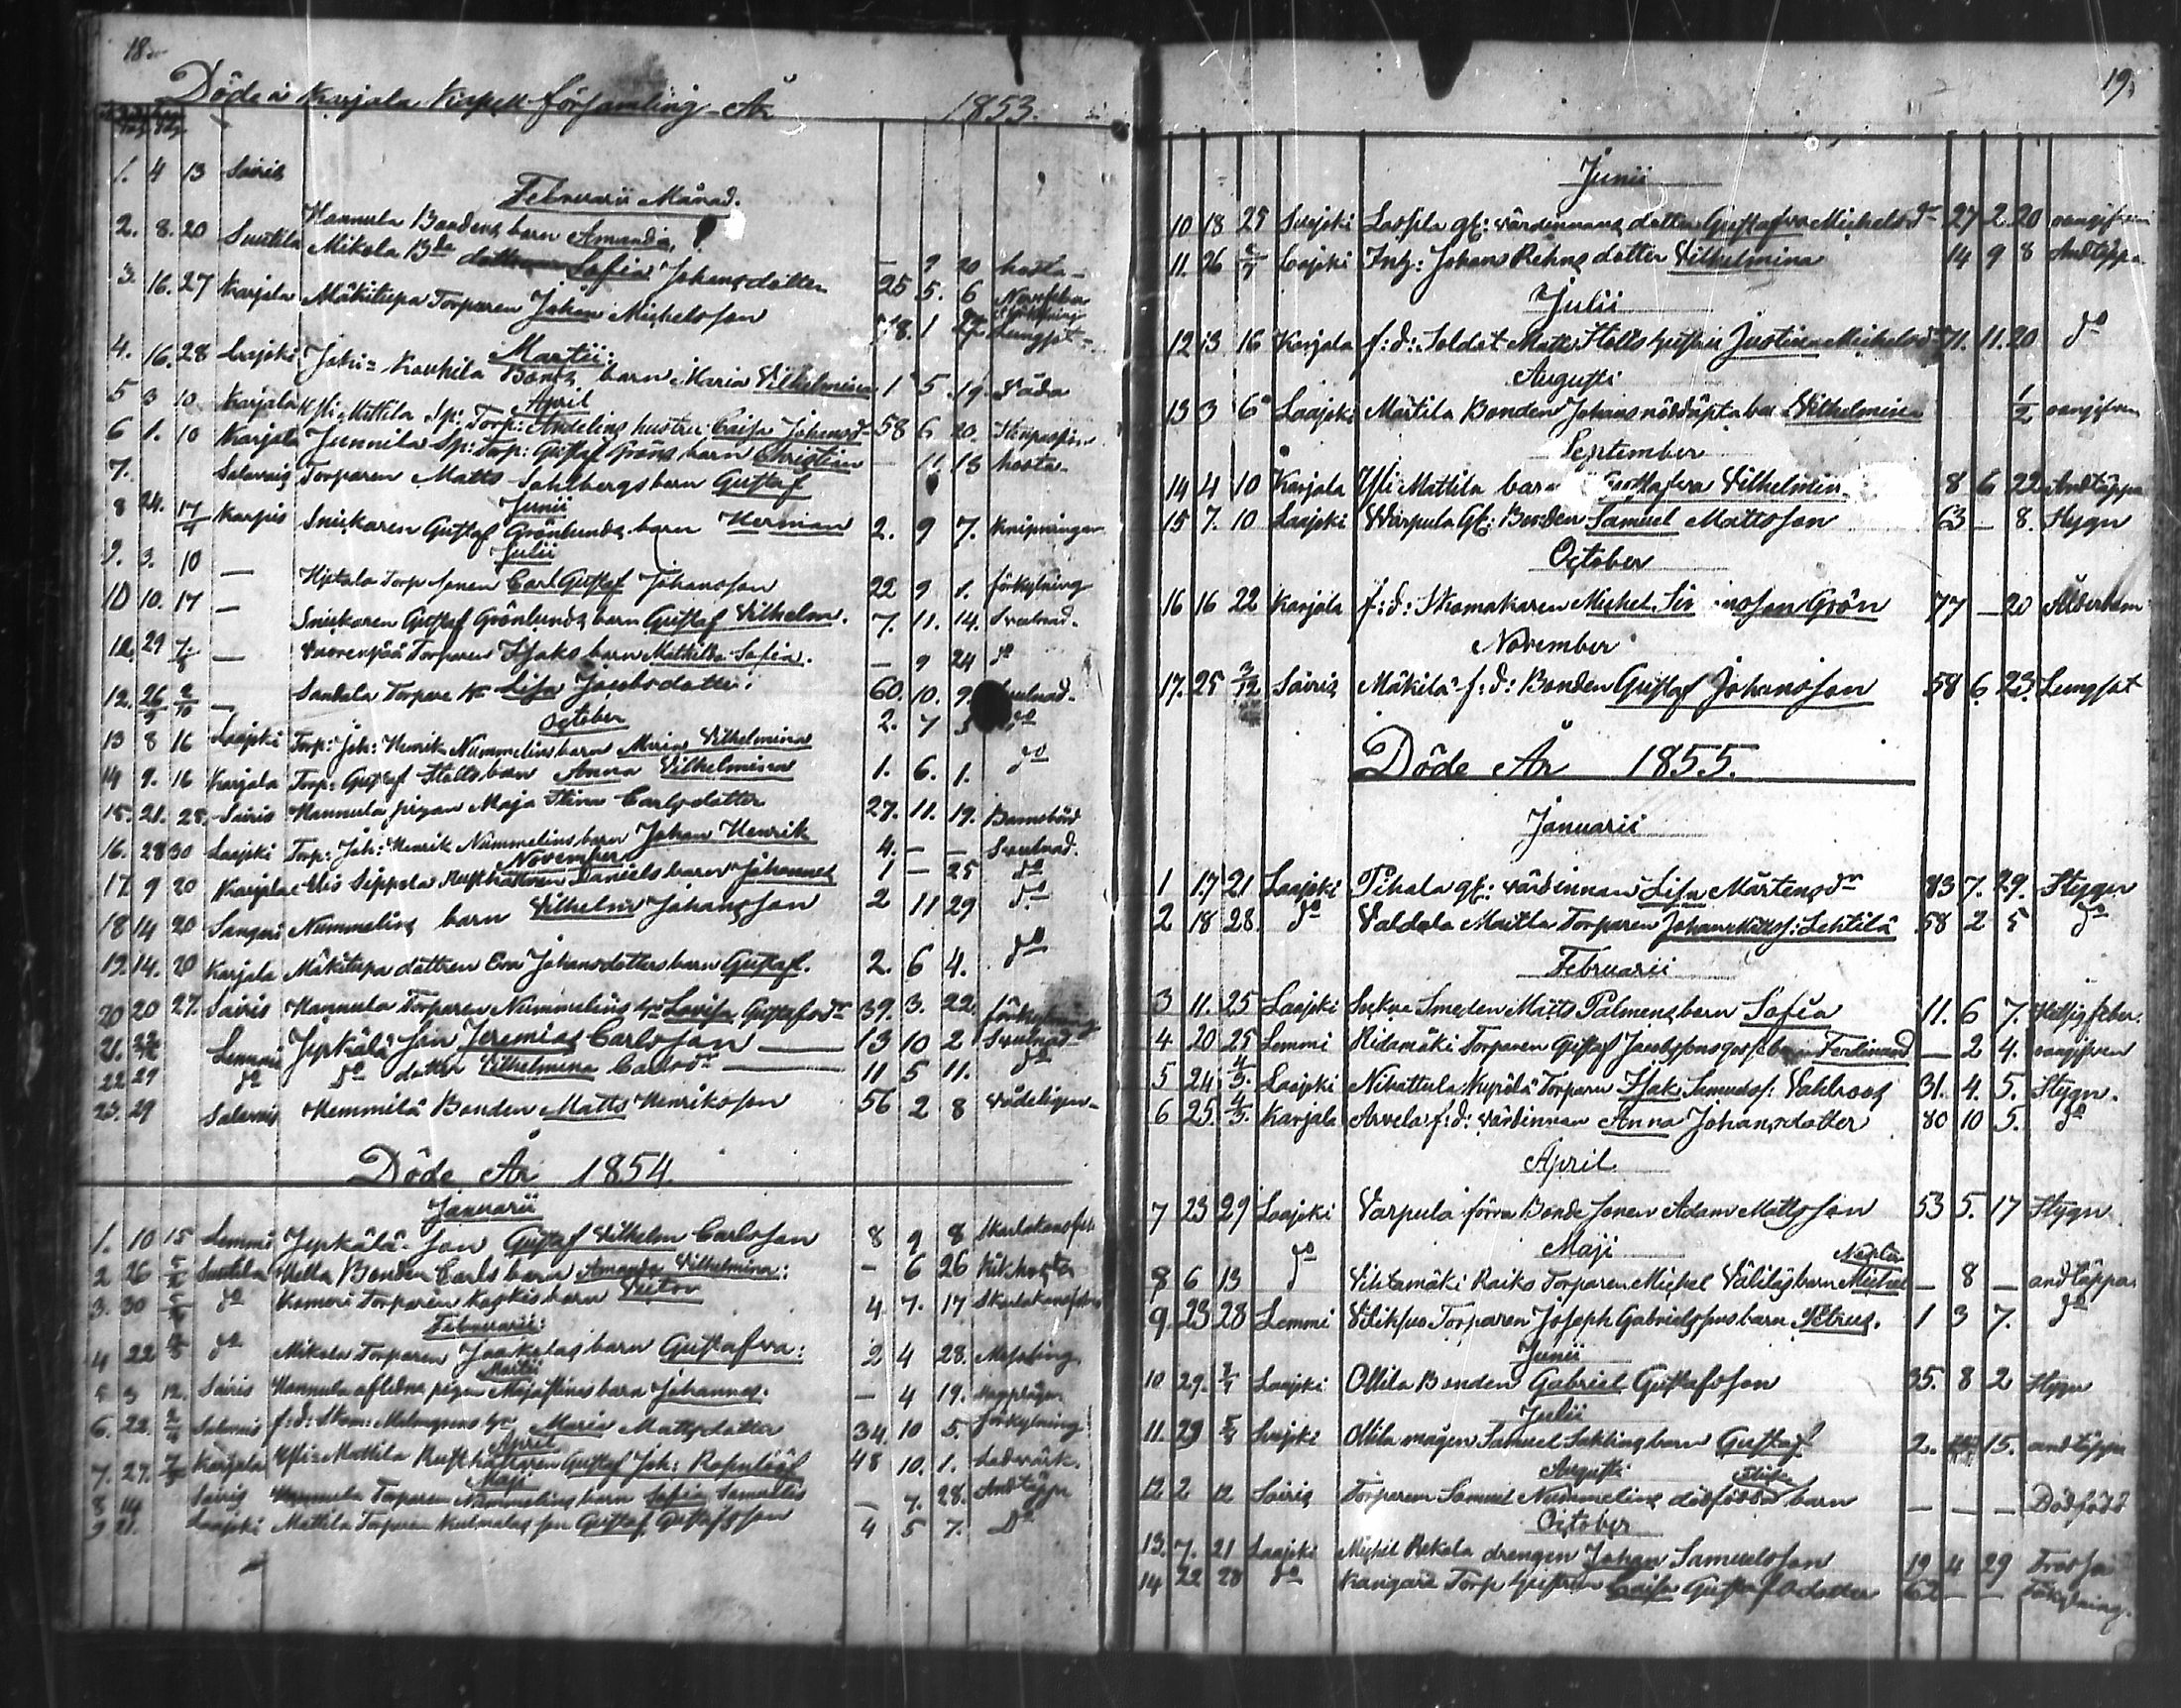 18
Döde i Karjala Kapell församling År 1853.
Februarii Månad.
1. 4 13 Sairis Hannula Bondens barn Amanda – 9 20 hosta
2. 8. 20 Suutila Mikola Bde Sofia Johansdotter 25 5. 6
3. 16. 27 Karjala Mäkitupa Torparen Johan Michelsson 1 Lungsot
Martii:
4. 16. 28 Laajoki Jaki= Kouhila Bonds barn Maria Vilhelmina 1 5 19. Våda
April
5 3 10 Karjala Yli Mattila Sp: Torp: Andelins hustru Caisa Johansd 58 6 20.
6 1. 10 Karjala Junnila Sp: Torp: Gustaf Gröns barn Christian – 11 13 hosta
7. Salavais Torparen Matts Sahlbergs barn Gustaf
Junii
8 24. 17 Karjais Snickaren Gustaf Grönlunds barn Herman 2. 9 7. Knipningar
Julii
9. 3. 10 – Torp sonen Carl Gustaf Johansson 22 9 1. förkylning
10 10. 17 – Snickaren Gustaf Grönlunds barn Gustaf Vilhelm. 7. 11. 14. Svulnad.
29 – Vuorenpää Torparen Isaks barn Mathilda Sofia. – 9 24 do
12. 26/9 2/10 – Sandala Torpare Lisa Jacobsdotter 60. 10. 9.
October
13 8 16 Laajoki Torp: Joh: Henrik Nummelins barn Maria Vilhelmina 2. 7 5 do
14 9. 16 Karjala Torp: Gustaf Stolts barn Anna Vilhelmina 1. 6. 1. do
15. 21. 28. Sairis Hannula pigan Maja Stina Carlsdotter 27. 11. 19. Barnsbörd
16. 28 30 Laajoki Torp: Joh: Henrik Nummelins barn Johan Henrik 4. – – Svulnad.
November
17. 9 20 Karjala Alis Sippola Rusthållaren Daniels barn Johannes 1 – 25 do
18 14 20 Nummelins barn Vilhelm Johansson 2 11 29 do
19. 14. 20 Karjala Mäkitupa dottren Eva Johansdotters barn Gustaf. 2. 6 4. do
20 20 27. Sairis Hannula Torparen Nummelins Lovisa Gustafsdr 39. 3. 22. förkylning
21. Lemmi Jyrkälä Son Jeremias Carlsson 13 10 2 Svulnad
22 29 do do dotter Vilhelmina Carlsdr 11 5 11. do
23. 29 Salavais Hemmilä Bonden Matts Henriksson 56 2 8 Vådeligen
Döde År 1854.
Januarii
1. 10 15 Lemmi Jyrkälä Son Gustaf Vilhelm Carlsson 8 9 8
2 26 Suutila Uella Bonden Carls barn Amanda Vilhelmina: – 6 26 Kikhosta
3. 30 do Komori Torparen Koskis barn 4 7. 17
Februarii:
4 22 do Mikola Torparen Jaakolas barn Gustafva: 2 4 28. Messling
Martii
5 3 12. Sairis Hannula aflidne pigan Maja Stinas barn Johannes. – 4 19.
6. 22. Salavais f:d: Skom: Malmgrens Maria Mattsdotter 34. 10 5. förkylning
April
7. 27. Karjala Yli=Mattila Rusthållaren Gustaf Joh: Roselööf 48 10. 1. Ledvärk.
Maji
8 14 Sairis Hannula Torparen Nummelins barn Sofia Samuelis – 7. 28. Andtäppa
9 21. Laajoki Mattila Torparen Kulmalas son Gustaf Gustafsson 4 5 7. Do
19.
Junii
10 18 25 Laajoki Laosila gl: värdinnans dotter Gustafva Michelsdr 27 2 20 oangifven
11. 26 Laajoki Inh: Johan Rehns dotter Vilhelmina 14 9 8 Andtäppa
Julii
12 13 16 Karjala f:d: Soldat Matts Stolts hustru Justina Michelsdr 71. 11. 20 do
Augusti
13 3 6 Laajoki Märtila Bonden Johans nöddöpta bar Vilhelmina 1/2 oangifven
September
14 4 10 Karjala Yli Mattila barn Gustafva Vilhelmin 8 6 22 Andtäppa
15 7. 10 Laajoki Warpula Gl: Bonden Samuel Mattsson 63 – 8. Stygn
October
16 16 22 Karjala f:d: Skomakaren Michel Grön 77 – 20 Ålderdom
November
17. 25 3/12 Sairis Mäkilä f:d: Bonden Gustaf Johansson 58 6. 23. Lungsot
Döde År 1855.
Januarii
1 17 21 Laajoki Pihala gl: värdinnan Lisa Mårtensdr 83 7. 29. Stygn
2 18 28. do Valdola Maitla Torparen Johan Mattss: Lehtilä 58 2 5 do
Februarii
3 11. 25 Laajoki Smeden Matts Palmens barn Sofia 11. 6 7. Hetsig feber.
4 20 25 Lemmi Ridamäki Torparen Gustaf Jacobssons Ferdinand – 2 4. oangifven
5 24 4/3. Laajoki Nihattula Kyrölä Torparen Isak Samuelss: Vahlroos 31. 4. 5. Stygn.
6 25. 4/3. Karjala Arvela f:d: värdinnan Anna Johansdotter 80 10 5. do
April
7 23 29 Laajoki Varpula förra Bonde Sonen Adam Mattsson 53 5. 17 Stygn
Maji
8 6 13 do Viktamäki Raiko Torparen Michel Välilas barn Michel – 8 – andtäppa
9. 23 28 Lemmi Torparen Joseph Gabrielssons barn Petrus. 1 3 7. do
Junii
10 29. Laajoki Ollila Bonden Gabriel Gustafsson 35. 8 2 Stygn
Julii
11. 29 Laajoki Ollila mågen Samuel barn Gustaf 2. 15. andtäppa
Augusti
12 2 12 Sairis Torparen Samuel Nummelins dödfödda barn – – – Dödfödd
October
13. 7. 21 Laajoki Michel Rekola drengen Johan Samuelsson 19 4 29
14 22 28 do Kangare Torp hustrun Caisa Gustafsdotter 62 – – Förkylning.